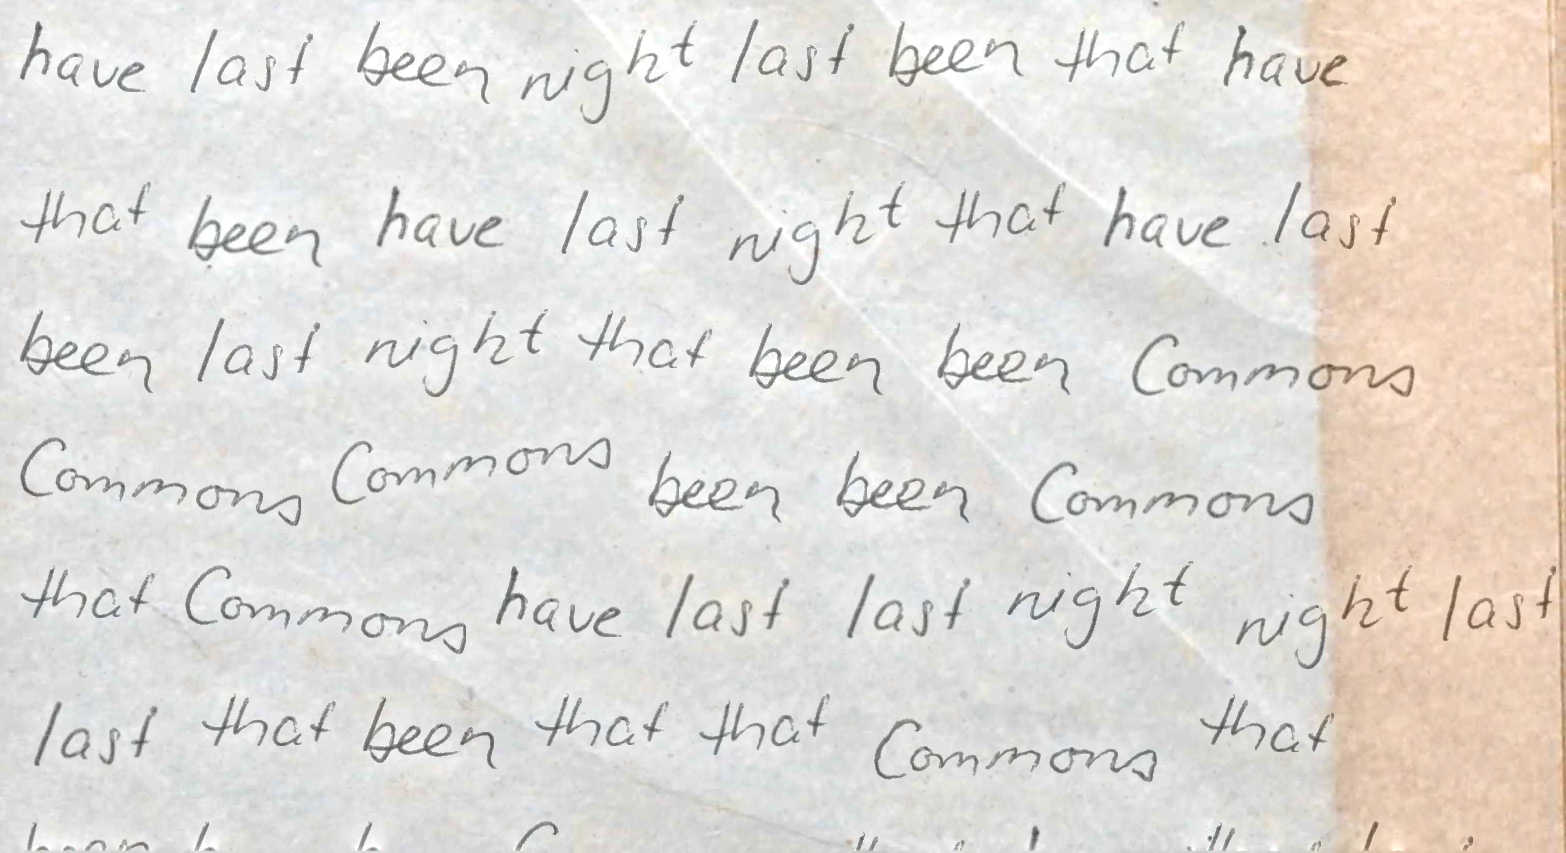 have last been night last been that have
that been have last night that have last
been last night that been been Commons
Commons Commons been been Commons
that Commons have last last night night last
last that been that that Commons that